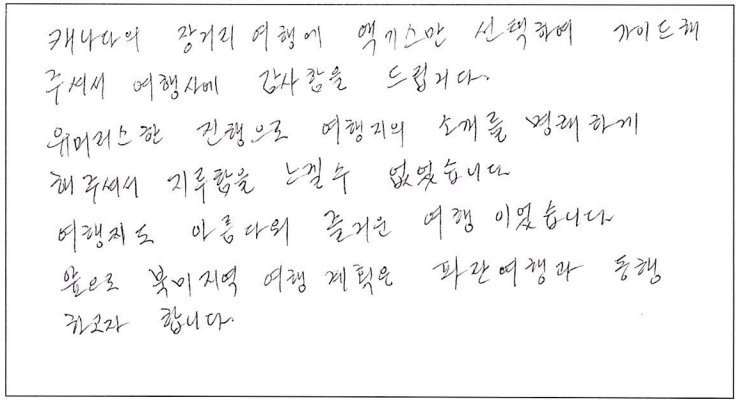 캐나다의 장거리 여행에 엑기스만 선택하여 가이드해
주셔서 여행사에 감사함을 드립니다.
유머러스한 진행으로 여행지의 소개를 명쾌하게
해주셔서 지루함을 느낄수 없었습니다
여행지도 아름다워 즐거운 여행 이었습니다
앞으로 북미지역 여행 계획은 파란여행과 동행
하고자 합니다.